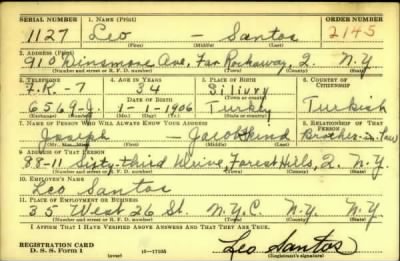 SERIAL NUMBER 1. NAME (Print) ORDER NUMBER
1127 Leo — Santos 2145
(First) (Middle) (Last)
2. ADDRESS (Print)
910 Dinsmore Ave, Far Rockaway, Q. N.Y.
(Number and street or R. F. D. number) (Town) (County) (State)
3. TELEPHONE 4. AGE IN YEARS 5. PLACE OF BIRTH 6. COUNTRY OF CITIZENSHIP
F.R.-7 34 Silivry
DATE OF BIRTH (Town or county)
6569-J. 1-1-1906 Turkey Turkish
(Exchange) (Number) (Mo.) (Day) (Yr.) (State or country)
7. NAME OF PERSON WHO WILL ALWAYS KNOW YOUR ADDRESS 8. RELATIONSHIP OF THAT PERSON
Joseph — Brother-in Law
(Mr., Mrs., Miss) (First) (Middle) (Last)
9. ADDRESS OF THAT PERSON
88-11 Sixty third Drive, Forest Hills, Q. N.Y.
(Number and street or R. F. D. number) (Town) (County) (State)
10. EMPLOYER'S NAME
Leo Santos
11. PLACE OF EMPLOYMENT OR BUSINESS
35 West 26 St. N.Y.C. N.Y. N.Y
(Number and street or R. F. D. number) (Town) (County) (State)
I AFFIRM THAT I HAVE VERIFIED ABOVE ANSWERS AND THAT THEY ARE TRUE.
REGISTRATION CARD
D. S. S. Form 1 (over) 16-17105 Leo Santos
(Registrant's signature)